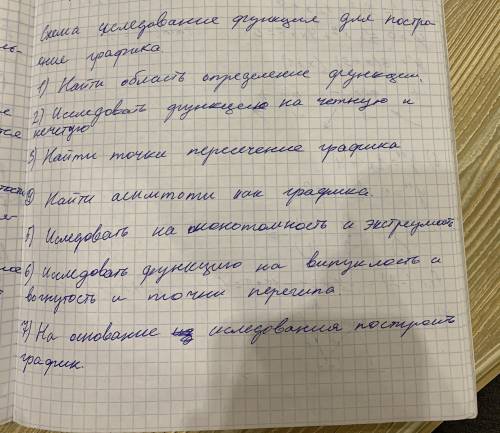 Схема иследование функция для постра
ение графика
1) Найти область определение функции.
2) Исследовать функцию на четную и
нечетую
3) Найти точки пересечение графика
Найти асимтоти как графика.
5) Иследовать на монотомность и экстреумость
6) Исследовать функцию на випуклость и
вогнутость и точки перегипа
7) На основание иследования построить
график.